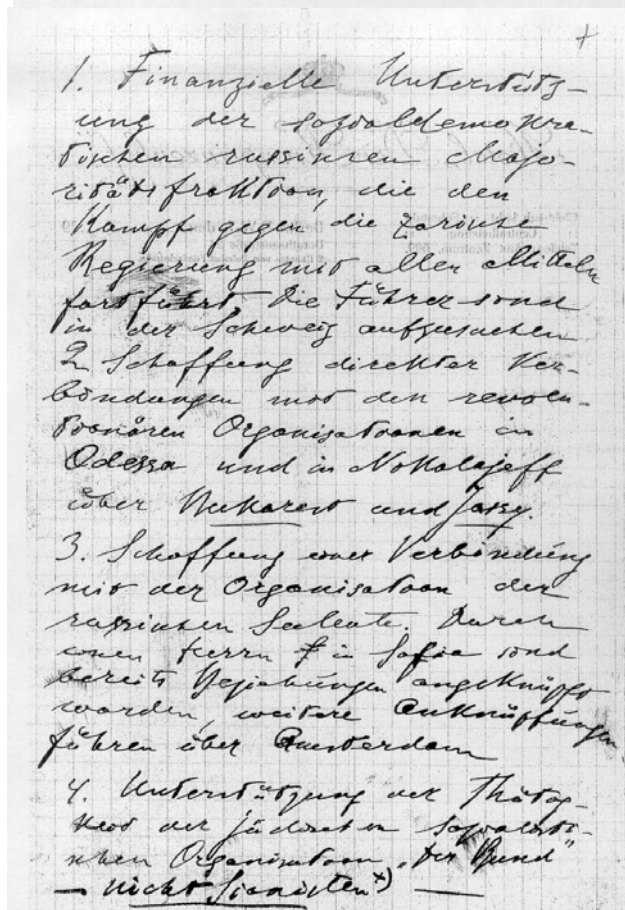 +
1. Finanzielle Unterstütz-
ung der sozialdemokra-
tischen russischen Majo-
ritätsfraktion, die den
Kampf gegen die zarische
Regierung mit allen Mitteln
fortführt. Die Führer sind
in der Schweiz aufzusuchen
2. Schaffung direkter Ver-
bindungen mit den revolu-
tionären Organisationen in
Odessa und in Nikolajeff
über Bukarest und Jassy.
3. Schaffung einer Verbindung
mit der Organisation der
russischen Seeleute. Durch
einen Herrn in Sofia sind
bereits Beziehungen angeknüpft
worden, weitere Anknüpfungen
führen über Amsterdam
4. Unterstützung der Thätig-
keit der jüdischen sozialisti-
schen Organisation "Der Bund"
– nicht Zionisten x) –